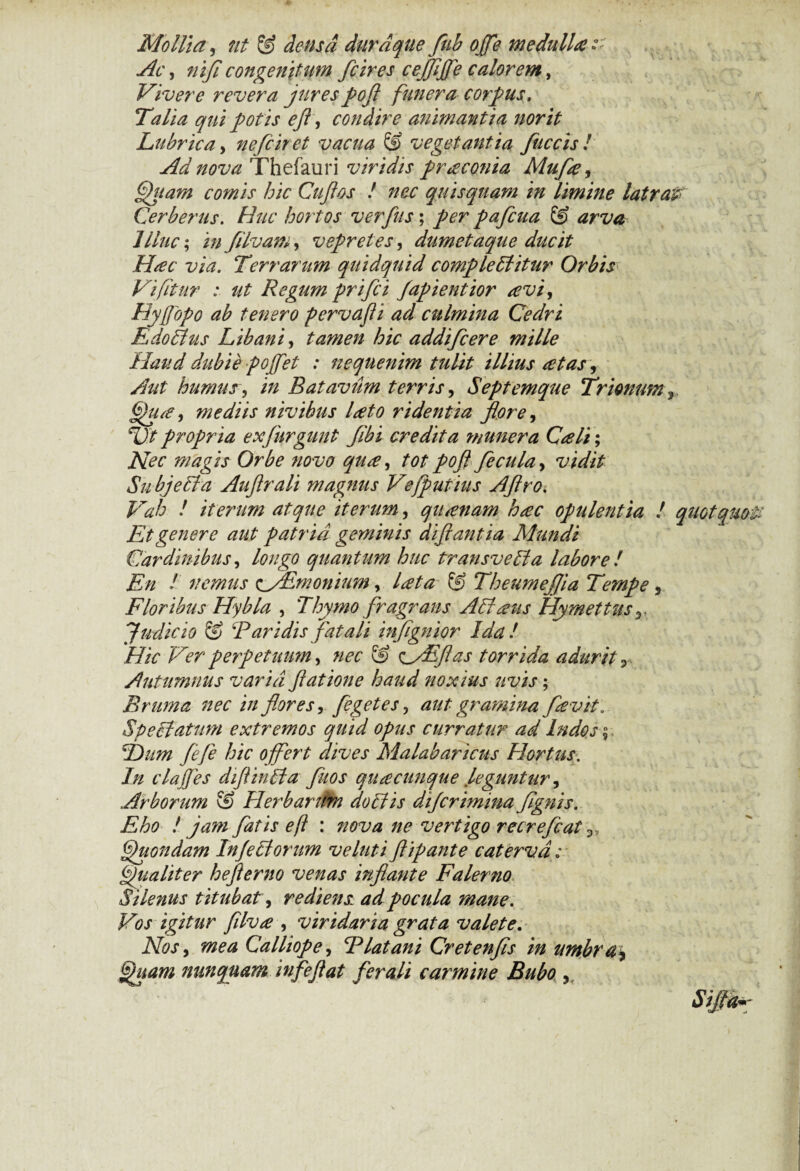 Mollia, ut & densâ durâque ſub oſſe medullæ:
Ac, niſi congenitum ſcires ceſſiſſe calorem,
Vivere revera jures poſt funera corpus.
Talia qui potis eſt, condire animantia norit
Lubrica, neſciret vacua & vegetantia ſuccis!
Ad nova Theſauri viridis præconia Muſæ,
Quam comis hic Cuſtos! nec quisquam in limine latrat
Cerberus. Huc hortos verſus; per paſcua & arva
Illuc; in ſilvam, vepretes, dumetaque ducit
Hæc via. Terrarum quidquid complectitur Orbis
Viſitur: ut Regum priſci ſapientior ævi,
Hyſſopo ab tenero pervaſti ad culmina Cedri
Edoctus Libani, tamen hic addiſcere mille
Haud dubiè poſſet: nequenim tulit illius ætas,
Aut humus, in Batavûm terris, Septemque Trionum,
Quæ, mediis nivibus læto ridentia flore,
Ut propria exſurgunt ſibi credita munera Cæli;
Nec magis Orbe novo quæ, tot poſt ſecula, vidit
Subjecta Auſtrali magnus Veſputius Aſtro.
Vah! iterum atque iterum, quænam hæc opulentia! quotquot
Et genere aut patriâ geminis diſtantia Mundi
Cardinibus, longo quantum huc transvecta labore!
En! nemus Æmonium, læta & Theumeſſia Tempe,
Floribus Hybla, Thymo fragrans Actæus Hymettus,
Judicio & Paridis fatali inſignior Ida!
Hic Ver perpetuum, nec & Æſtas torrida adurit,
Autumnus variâ ſtatione haud noxius uvis;
Bruma nec in flores, ſegetes, aut gramina ſævit.
Spectatum extremos quid opus curratur ad Indos;
Dum ſeſe hic offert dives Malabaricus Hortus.
In claſſes diſtincta ſuos quæcunque leguntur,
Arborum & Herbarum doctis diſcrimina ſignis.
Eho! jam ſatis eſt: nova ne vertigo recreſcat,
Quondam Inſectorum veluti ſtipante catervâ:
Qualiter heſterno venas inflante Falerno
Silenus titubat, rediens ad pocula mane.
Vos igitur ſilvæ, viridaria grata valete.
Nos, mea Calliope, Platani Cretenſis in umbra,
Quam nunquam infeſtat ferali carmine Bubo,
Siſta-